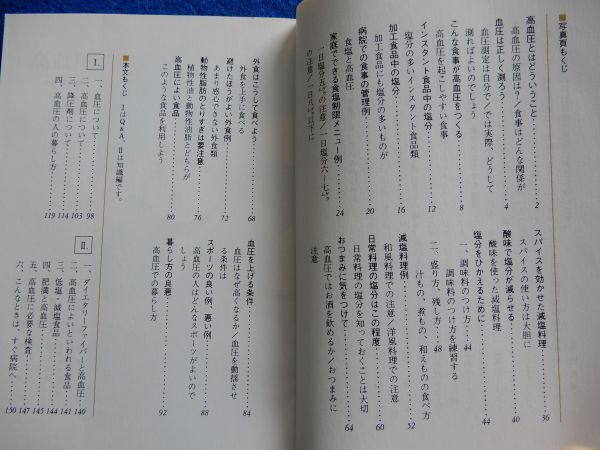 ■写真頁もくじ
高血圧とはどういうこと……2
高血圧の原因は？／食事はどんな関係が
血圧は正しく測ろう……4
血圧測定は自分で／では実際、どうして
測ればよいのでしょう
こんな食事が高血圧をつくる……8
高血圧を起こしやすい食事
インスタント食品中の塩分……12
塩分の多いインスタント食品類
加工食品中の塩分……16
加工食品にも塩分の多いものが
病院での食事の管理例……20
食塩と高血圧
家庭でできる食塩制限メニュー例……24
一日塩分五㌘の注意／一日塩分六―七㌘
の注意／一日八㌘以下に
スパイスを効かせた減塩料理……36
スパイスの使い方は大胆に
酸味で塩分が減らせる……40
酸味を使った減塩料理
塩分をひかえるために……44
一、調味料のつけ方……44
調味料のつけ方を練習する
二、盛り方、残し方……48
汁もの、煮もの、和えものの食べ方
減塩料理例……52
和風料理での注意／洋風料理での注意
日常料理の塩分はこの程度……60
日常料理の塩分を知っておくことは大切
おつまみに気をつけて……64
高血圧ではお酒を飲めるか／おつまみに
注意
外食はこうして食べよう……68
外食を上手に食べる
避けたほうがよい外食例……72
あまり感心できない外食類
動物性脂肪のとりすぎは要注意……76
植物性油と動物性油脂とどちらが
高血圧によい食品……80
このような食品を利用して
血圧を上げる条件……84
血圧はなぜ高くなるか／血圧を動揺させ
る条件は
スポーツの良い例、悪い例……88
高血圧の人はどんなスポーツがよいので
しょう
暮らし方の良悪……92
高血圧での暮らし方
■本文もくじ　ⅠはQ&A、Ⅱは知識編です。
Ⅰ.
一、血圧について……98
二、高血圧について……103
三、降圧剤について……114
四、高血圧の人の暮らし方……119
Ⅱ.
一、ダイエタリーファイバーと高血圧……140
二、高血圧によいといわれる食品……141
三、低塩・減塩食品……144
四、肥満と高血圧……145
五、高血圧に必要な検査……147
六、こんなときは、すぐ病院へ……150